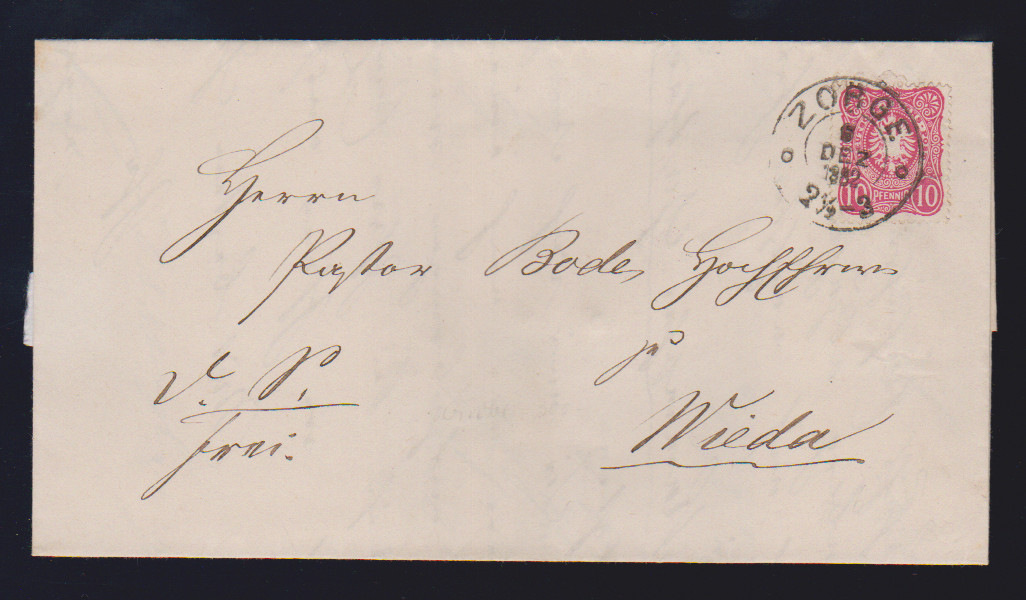 ZORGE
6
DEZ
1882
2½-3
10 PFENNIG 10
Herrn
Pastor Bode, Hochehrw
zu
Wieda
d. S.
frei.